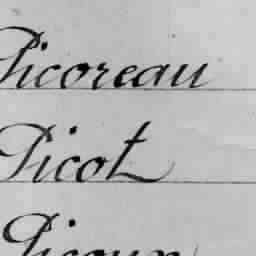 Picoreau
Picot